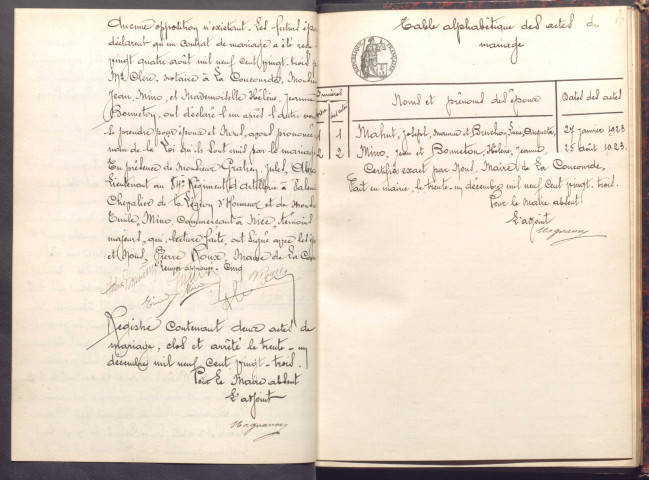 Aucune opposition n'existant. Les futurs ép
déclarent qu'un contrat de mariage a été
vingt quatre août mil neuf cent vingt-trois
Me Clerc, notaire à La Concourde,
Jean, Mino, et Mademoiselle Hélène, Jeanne
Bonneton, ont déclaré l'un après l'autre
se prendre pour époux et Nous, avons prononcé
nom de la Loi qu'ils sont unis par le mariage
En présence de Monsieur Jules,
Lieutenant au Régiment d'Artillerie à Valen
Chevalier de la Légion d'Honneur et de
Emile, Mino, commerçant à Nice, témoins
majeurs, qui, lecture faite, ont signé avec les ép
et Nous, Pierre Roux, Maire de La
Registre contenant deux actes de
mariage, clos et arrêté le trente-un
décembre mil neuf cent vingt-trois.
Pour le Maire absent
L'adjoint
Table alphabétique des actes de
mariage
Numéros
Noms et prénoms des époux
Dates des actes
1 1 Mahut, Joseph, et 27 janvier 1923
2 2 Mino, Jean et Bonneton, Hélène, Jeanne 25 août 1923.
Certifié exact par Nous, Maire de La Concourde,
Fait en mairie, le trente-un décembre mil neuf cent vingt-trois.
Pour le Maire absent
L'adjoint